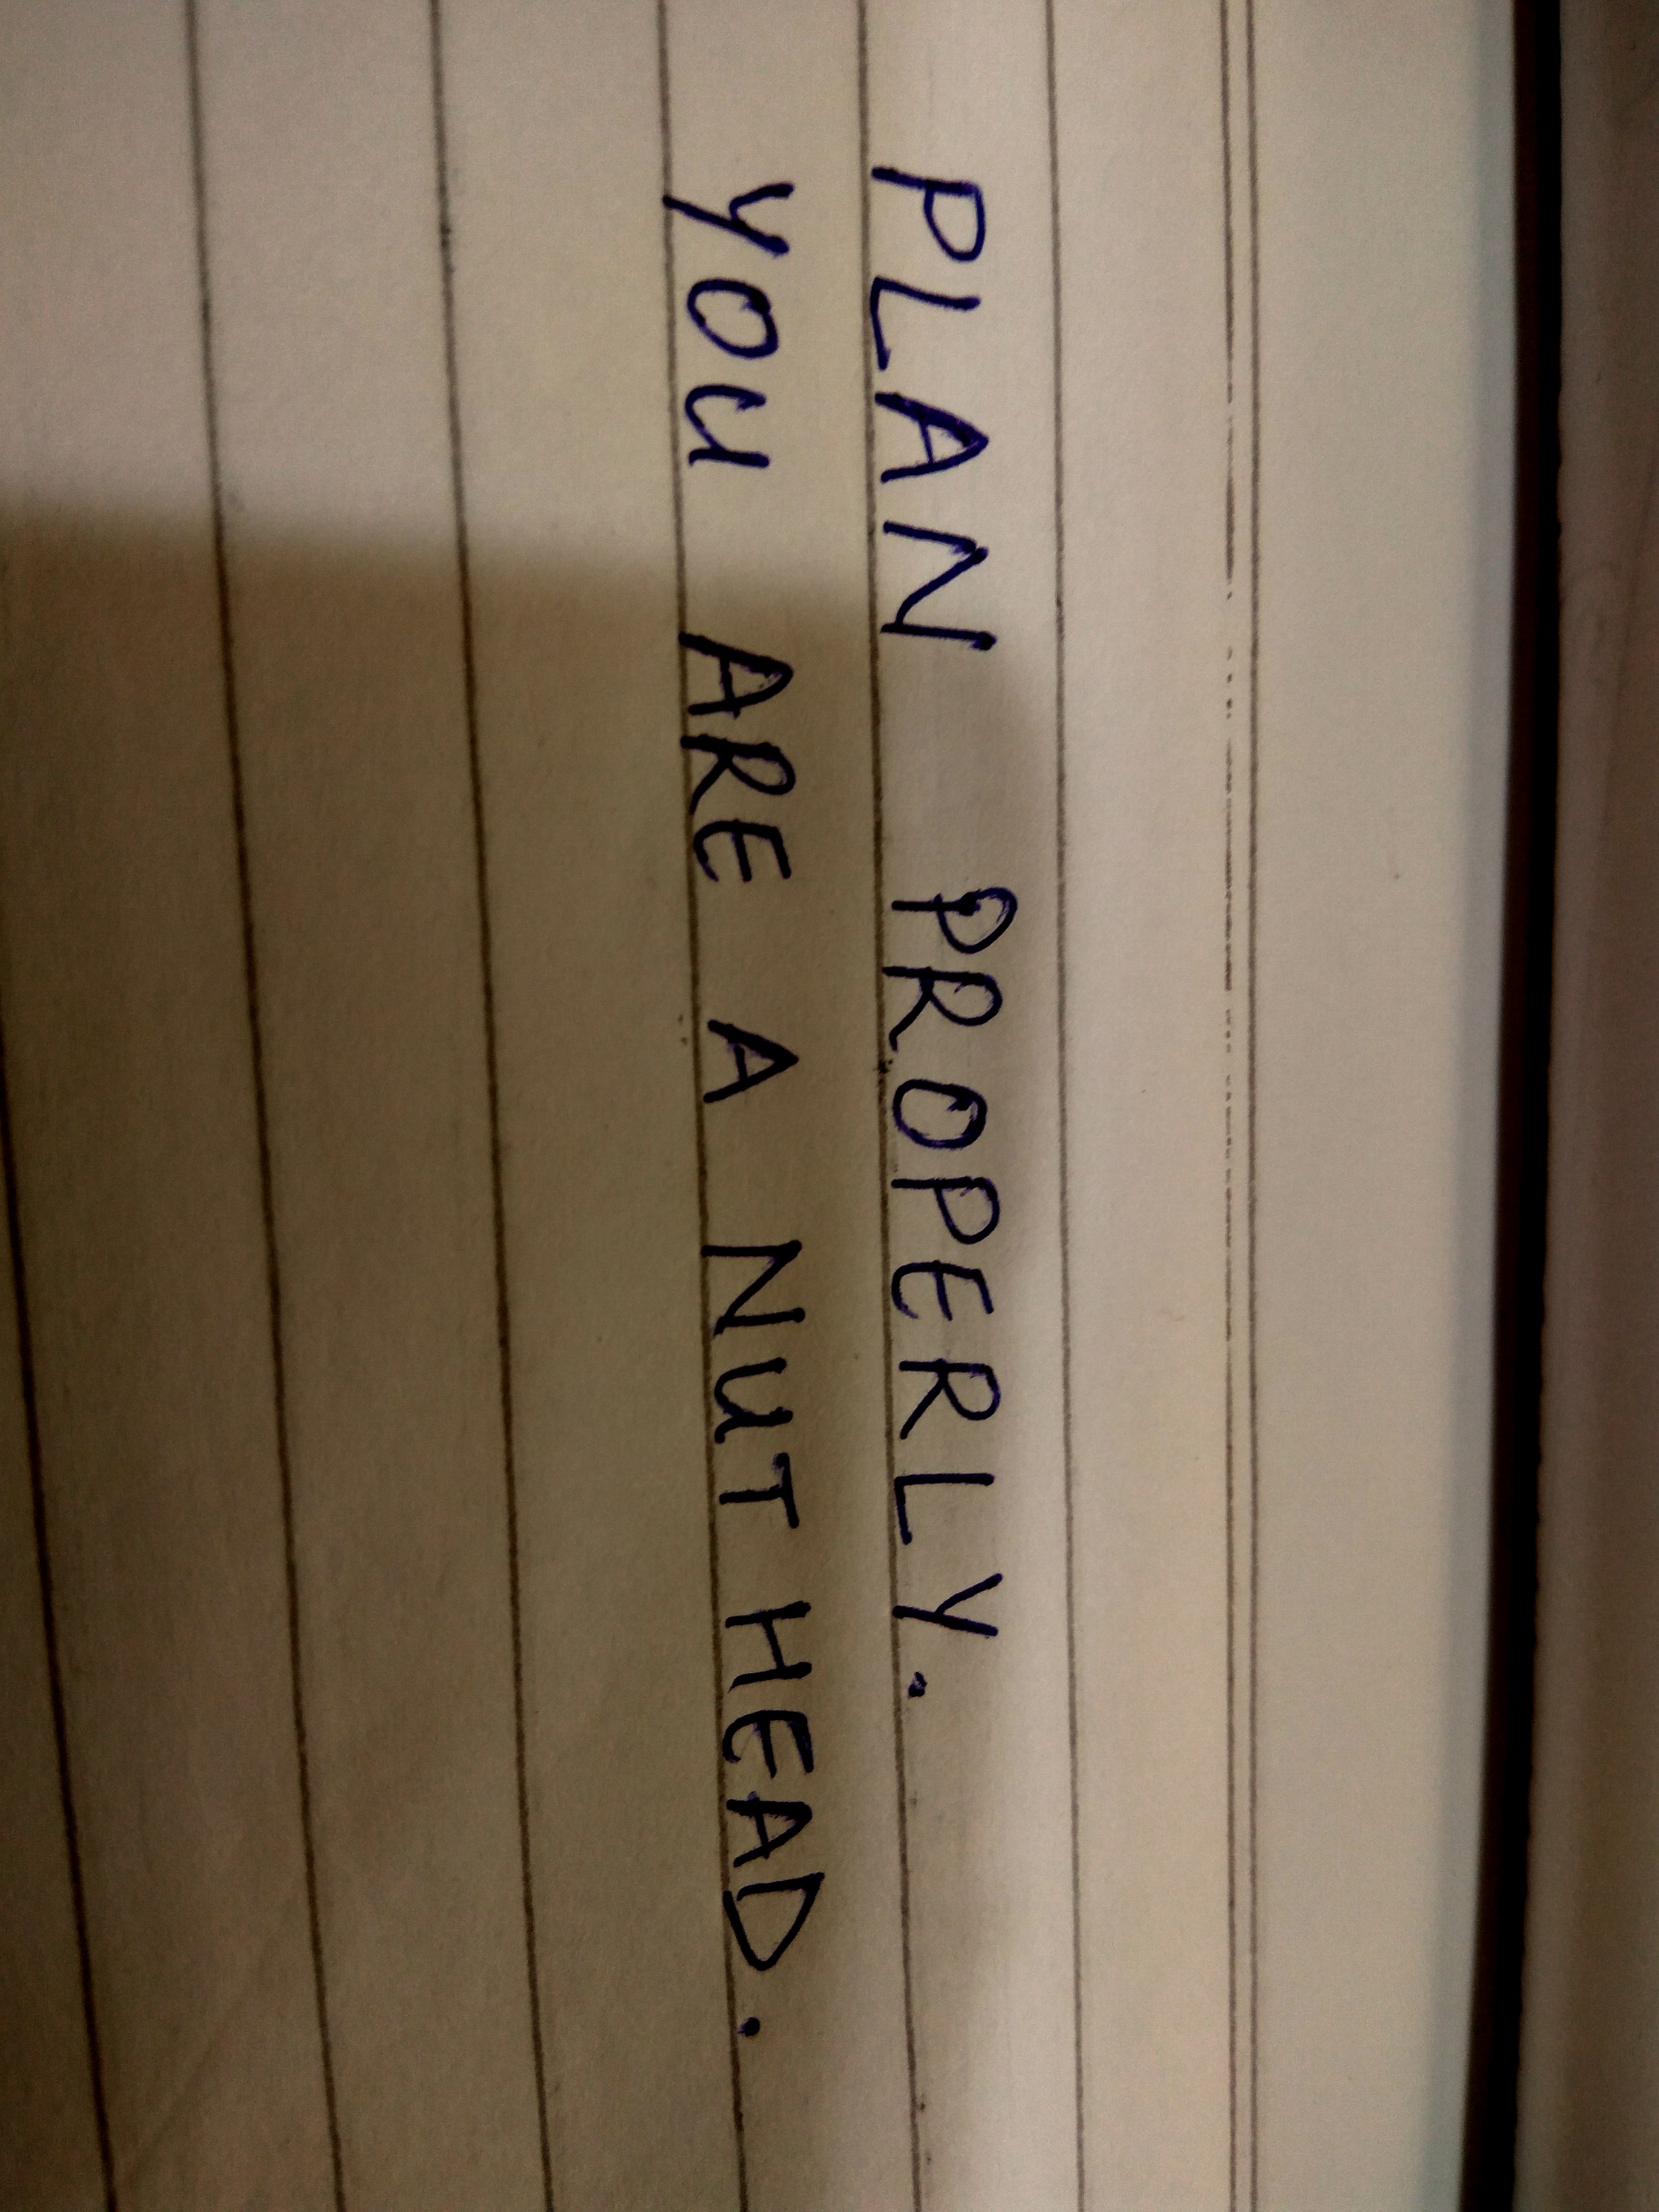 PLAN PROPERLY.
YOU ARE A NUT HEAD.